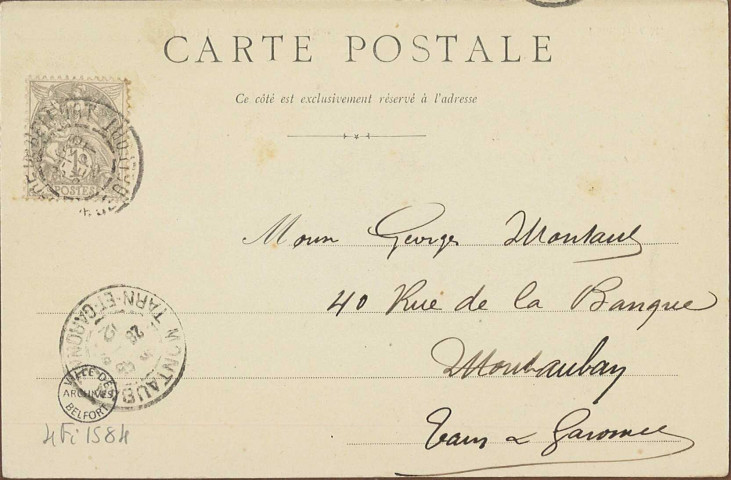 CARTE POSTALE
Ce côté est exclusivement réservé à l'adresse
POSTES
Georges Montaut
40 Rue de la Banque
Montauban
Tarn & Garonne
MONTAUB
TARN-ET-GARONNE
VILLE DE
ARCHIVES
BELFORT
4Fi 1584